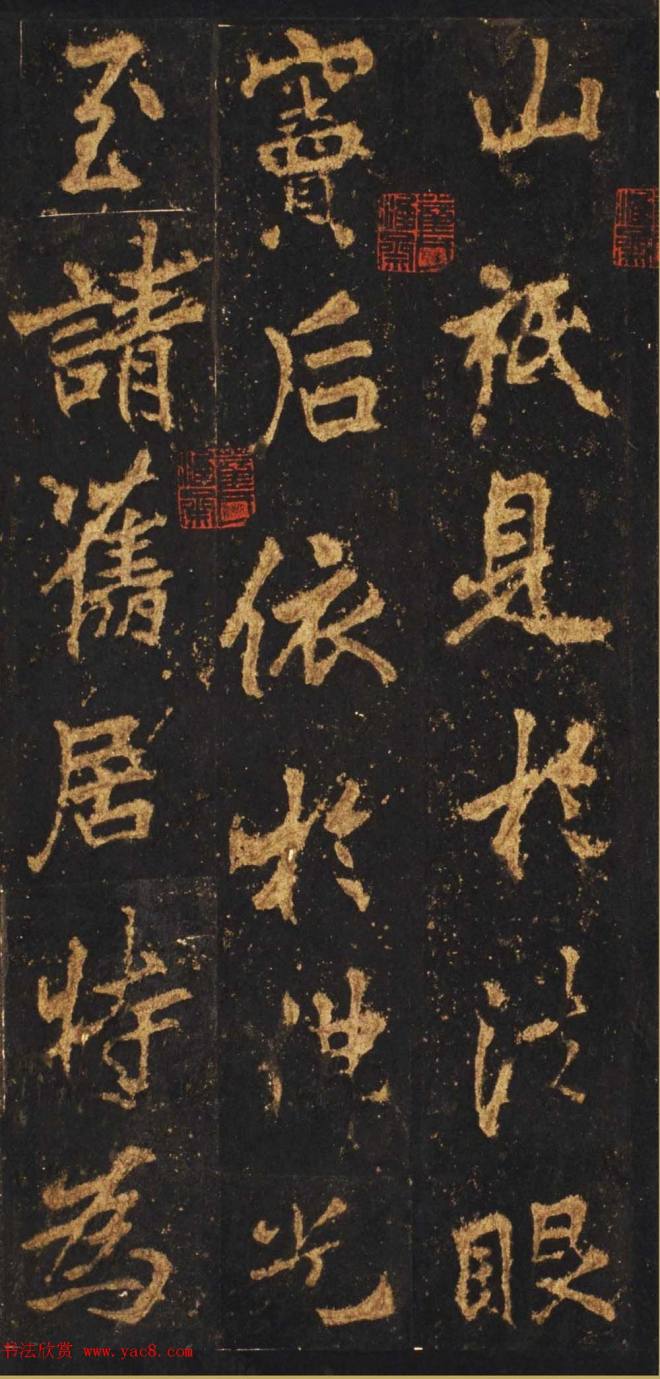 山祇見於法眼
竇后依於佛光
至請舊居特為
书法欣赏 www.yac8.com